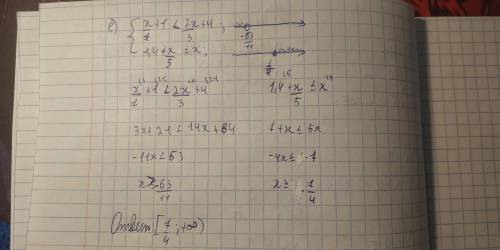 е) { x/7 + 1 < 2x/3 + 4 ;
-63/11
1,4 + x/5 ≤ x,
7/4
x/7 + 1 < 2x/3 + 4    1,4 + x/5 ≤ x
3x + 21 < 14x + 84    7 + x ≤ 5x
-11x < 63    -4x ≤ -7
x > -63/11    x ≥ 7/4
Ответ [7/4 ; +∞)